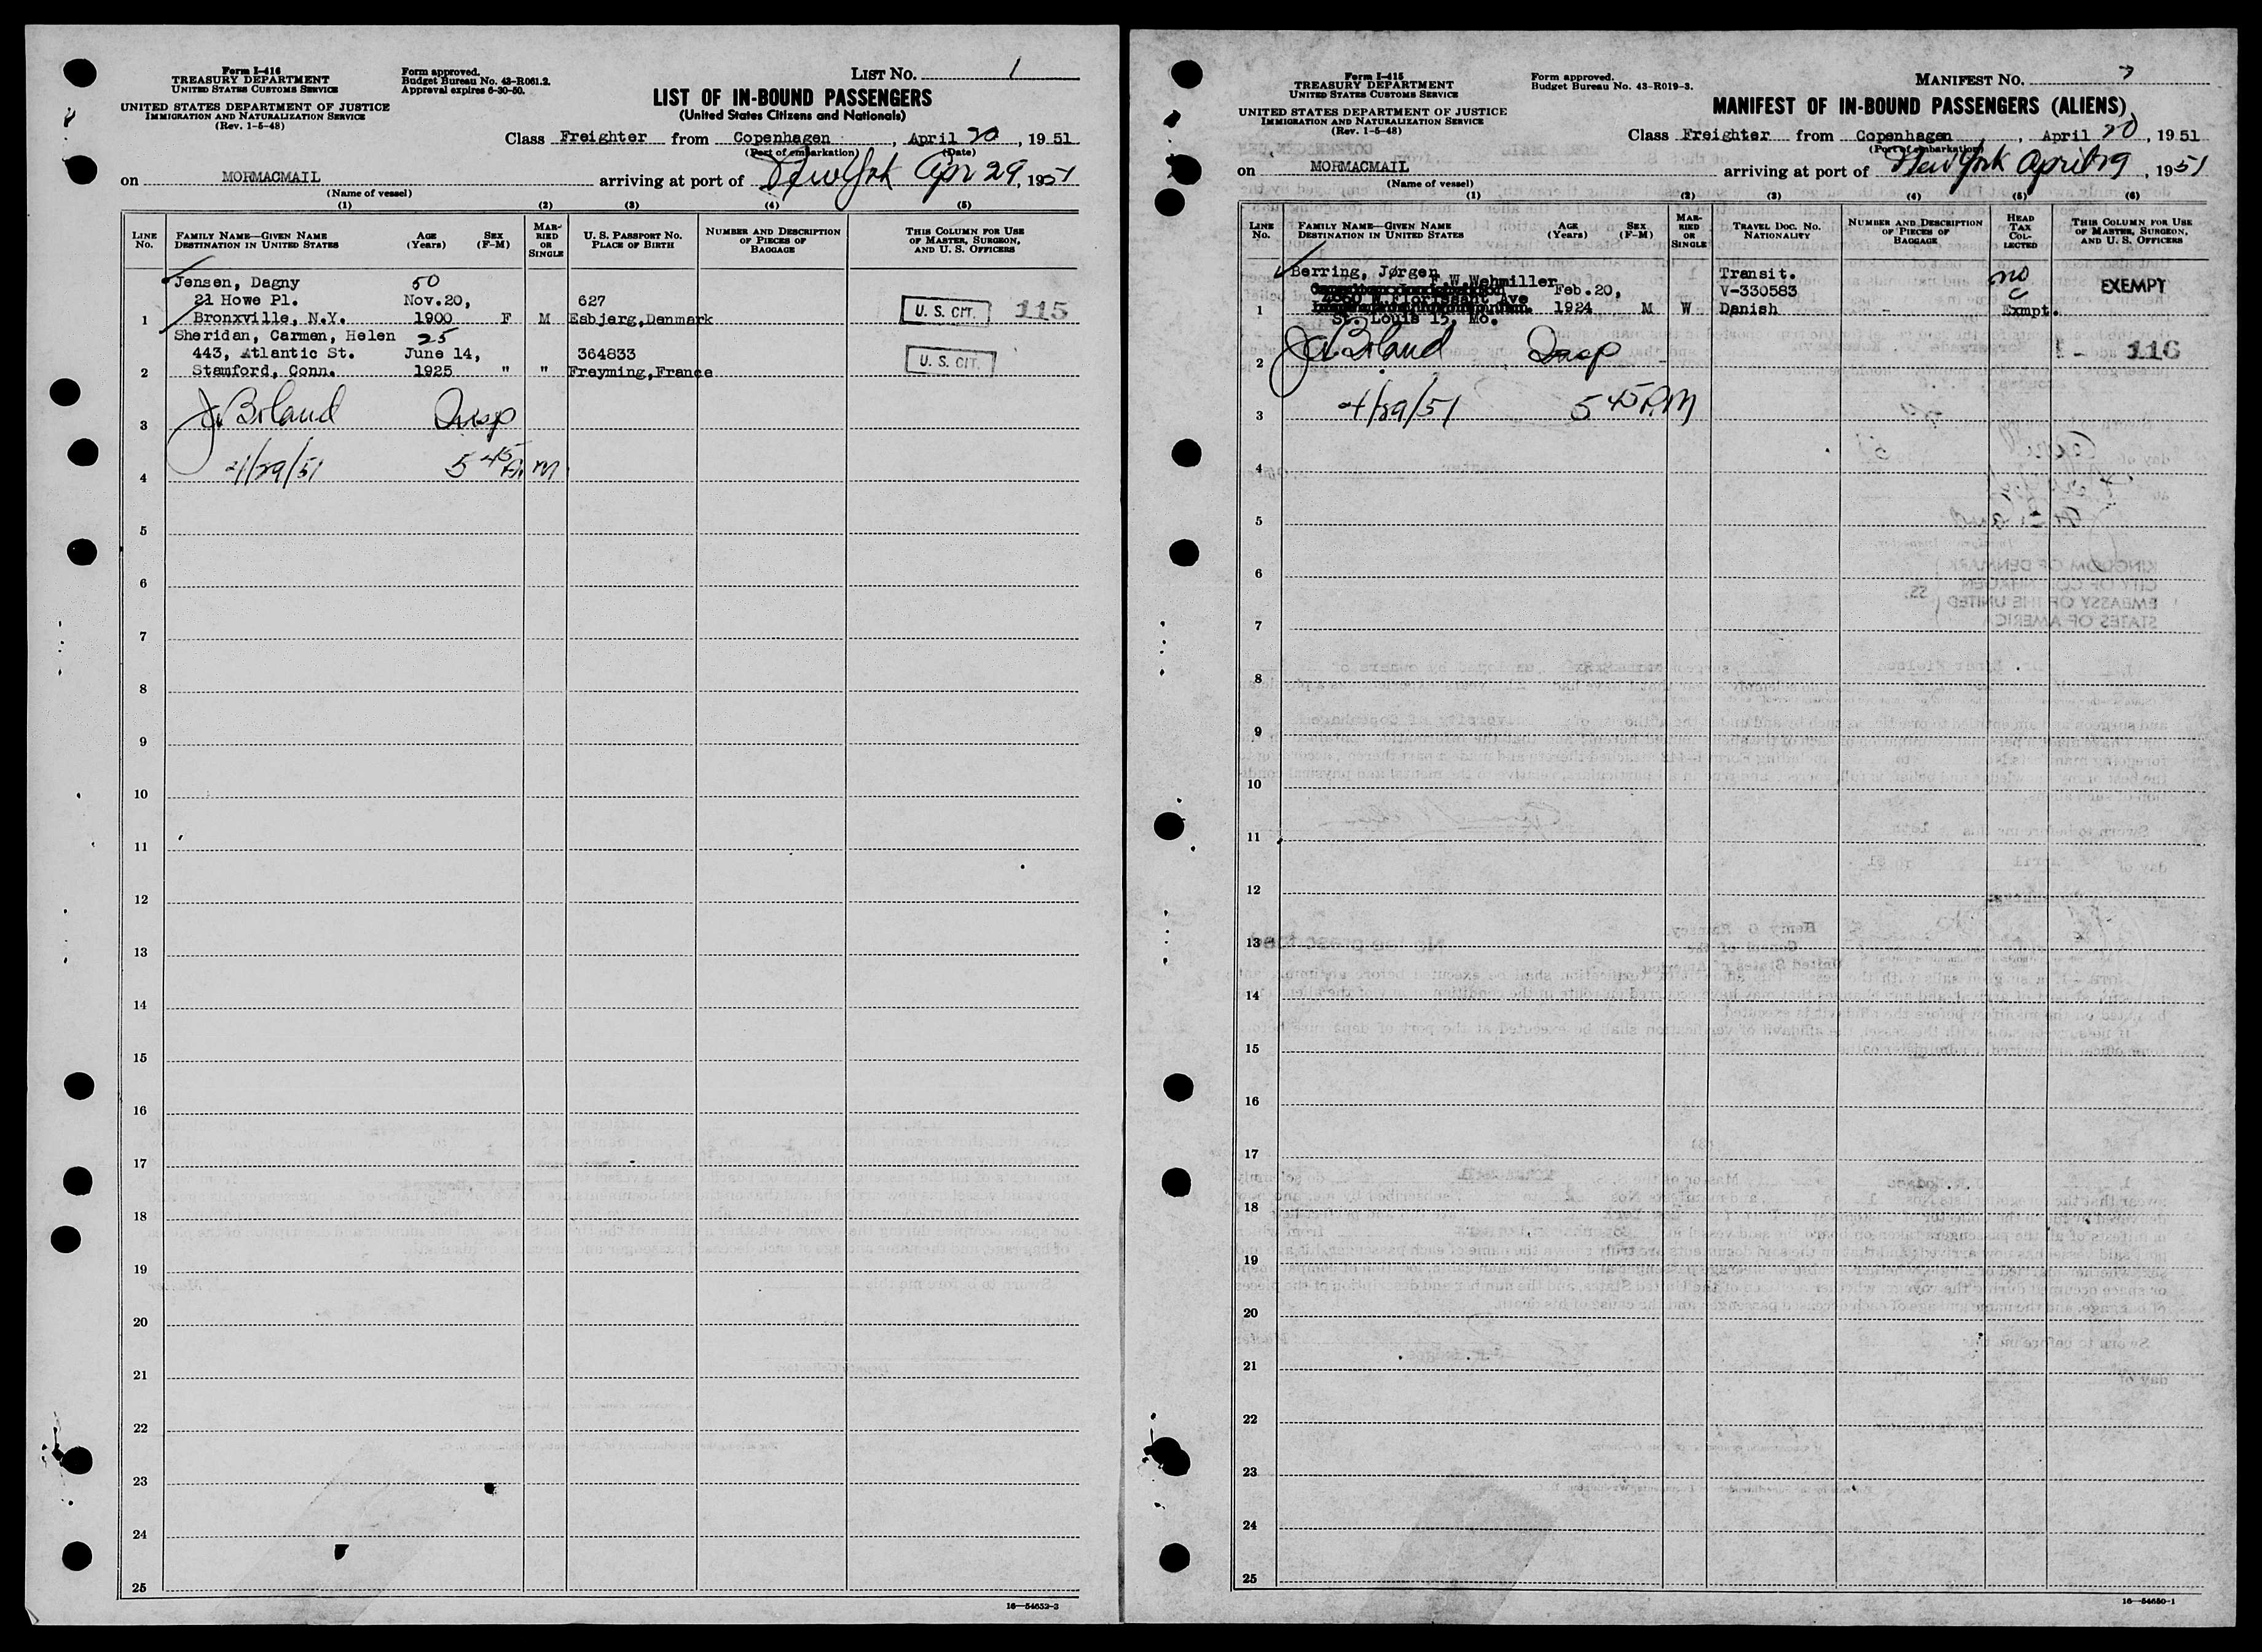 Form I-416
TREASURY DEPARTMENT
UNITED STATES CUSTOMS SERVICE
UNITED STATES DEPARTMENT OF JUSTICE
IMMIGRATION AND NATURALIZATION SERVICE
(Rev. 1-5-48)
Form approved.
Budget Bureau No. 43-R061.2.
Approval expires 6-30-50.
LIST NO. 1
LIST OF IN-BOUND PASSENGERS
(United States Citizens and Nationals)
Class Freighter from Copenhagen, April 20, 1951
(Port of embarkation) (Date)
on MORMACMAIL arriving at port of New York Apr 29, 1951
(Name of vessel)
(1) (2) (3) (4) (5)
LINE NO.
FAMILY NAME—GIVEN NAME
DESTINATION IN UNITED STATES
AGE (Years)
SEX (F-M)
MARRIED OR SINGLE
U. S. PASSPORT NO.
PLACE OF BIRTH
NUMBER AND DESCRIPTION OF PIECES OF BAGGAGE
THIS COLUMN FOR USE OF MASTER, SURGEON, AND U. S. OFFICERS
Jensen, Dagny 50
21 Howe Pl. Nov.20, 627
1 Bronxville, N.Y. 1900 F M Esbjerg,Denmark U. S. CIT. 115
Sheridan, Carmen, Helen 25
443, Atlantic St. June 14, 364833
2 Stamford, Conn. 1925 " " Freyming,France U. S. CIT.
3 J. Boland Insp
4 4/29/51 5 45 P.M
5
6
7
8
9
10
11
12
13
14
15
16
17
18
19
20
21
22
23
24
25
16—54652-3
Form I-415
TREASURY DEPARTMENT
UNITED STATES CUSTOMS SERVICE
UNITED STATES DEPARTMENT OF JUSTICE
IMMIGRATION AND NATURALIZATION SERVICE
(Rev. 1-5-48)
Form approved.
Budget Bureau No. 43-R019-3.
MANIFEST NO.
MANIFEST OF IN-BOUND PASSENGERS (ALIENS)
Class Freighter from Copenhagen, April 20, 1951
(Port of embarkation)
on MORMACMAIL arriving at port of New York April 29, 1951
(Name of vessel)
(1) (2) (3) (4) (5) (6)
LINE NO.
FAMILY NAME—GIVEN NAME
DESTINATION IN UNITED STATES
AGE (Years)
SEX (F-M)
MARRIED OR SINGLE
TRAVEL DOC. NO.
NATIONALITY
NUMBER AND DESCRIPTION OF PIECES OF BAGGAGE
HEAD TAX COLLECTED
THIS COLUMN FOR USE OF MASTER, SURGEON, AND U. S. OFFICERS
Berring, Jørgen Transit. no
F.W.Wehmiller Feb.20, V-330583 EXEMPT
4660 W Florissant Ave
1 1924 M W Danish Exmpt.
St. Louis 15, Mo.
2 J. Boland Insp 116
3 4/29/51 5 45 P.M
4
5
6
7
8
9
10
11
12
13
14
15
16
17
18
19
20
21
22
23
24
25
16—54650-1